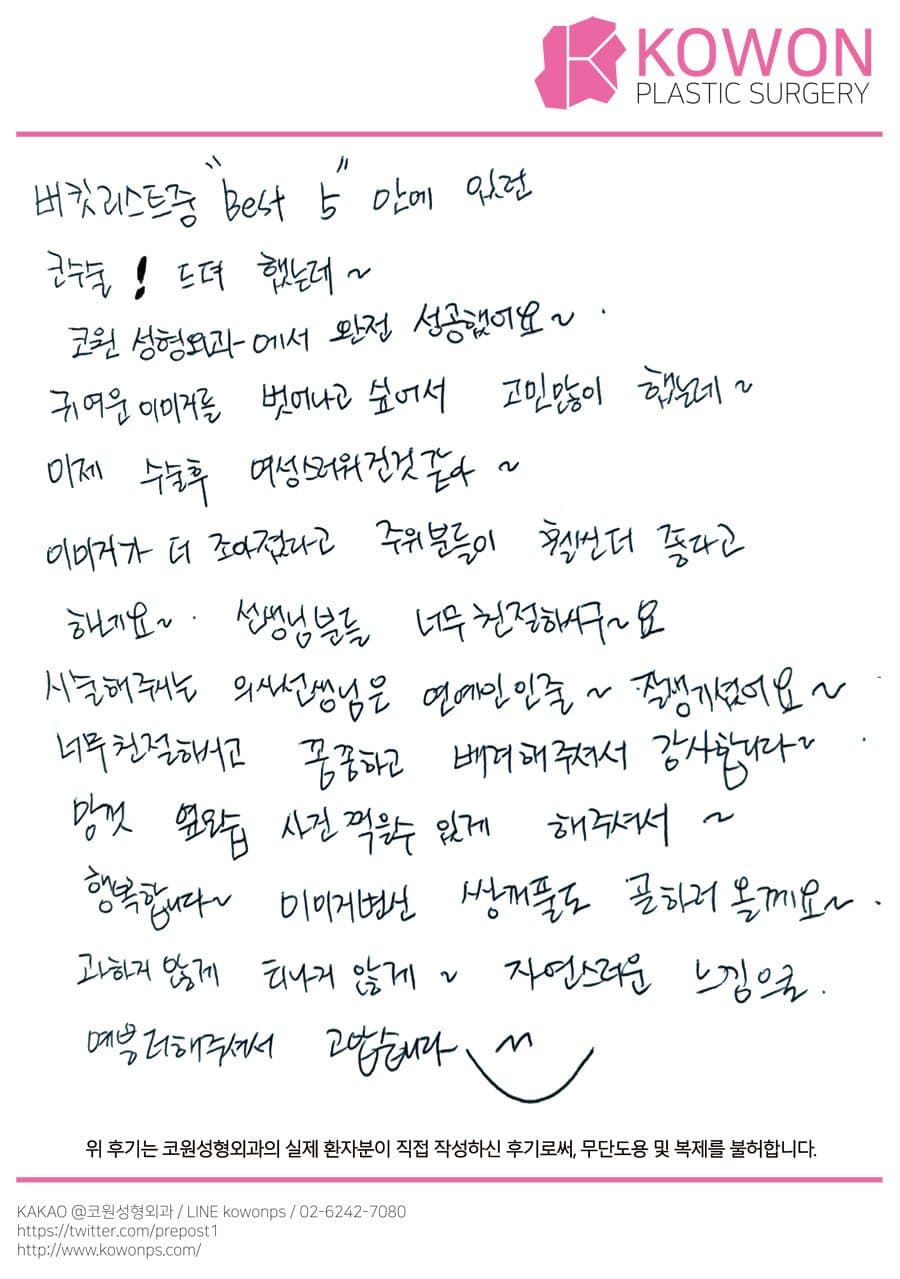 KOWON
PLASTIC SURGERY
버킷리스트중 "Best 5" 안에 있던
코수술! 드뎌 했는데~
코원 성형외과에서 완전 성공했어요~.
귀여운 이미지를 벗어나고 싶어서 고민많이 했는데~
이제 수술후 여성스러워진것같아~
이미지가 더 조아졌다고 주위분들이 훨씬더 좋다고
하네요~. 선생님분들 너무친절하시구~요
시술해주시는 의사선생님은 연예인인줄~ 잘생기셨어요~
너무친절하시고 꼼꼼하고 배려해주셔서 감사합니다~.
맘껏 옆모습 사진찍을수 있게 해주셔서~
행복합니다~ 이미지변신 쌍꺼풀도 하러올께요~.
과하지 않게 티나지 않게~ 자연스러운 느낌으로.
해주셔서 고맙습니다
위 후기는 코원성형외과의 실제 환자분이 직접 작성하신 후기로써, 무단도용 및 복제를 불허합니다.
KAKAO @코원성형외과 / LINE kowonps / 02-6242-7080
https://twitter.com/prepost1
http://www.kowonps.com/